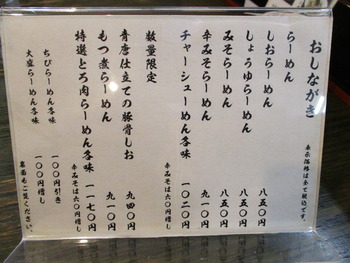 おしながき
表示価格は全て税込です。
らーめん
しおらーめん 八五〇
しょうゆらーめん 八五〇
みそらーめん 八五〇
辛みそらーめん 九一〇
チャーシューめん各味 一〇二〇
辛みそは六〇円増し
数量限定
青唐仕立ての豚骨しお 九四〇
もつ煮らーめん 九一〇
特選とろ肉らーめん各味 一一七〇
辛みそは六〇円増し
ちびらーめん各味 一〇〇円引き
大盛らーめん各味 一〇〇円増し
裏面もご覧ください。